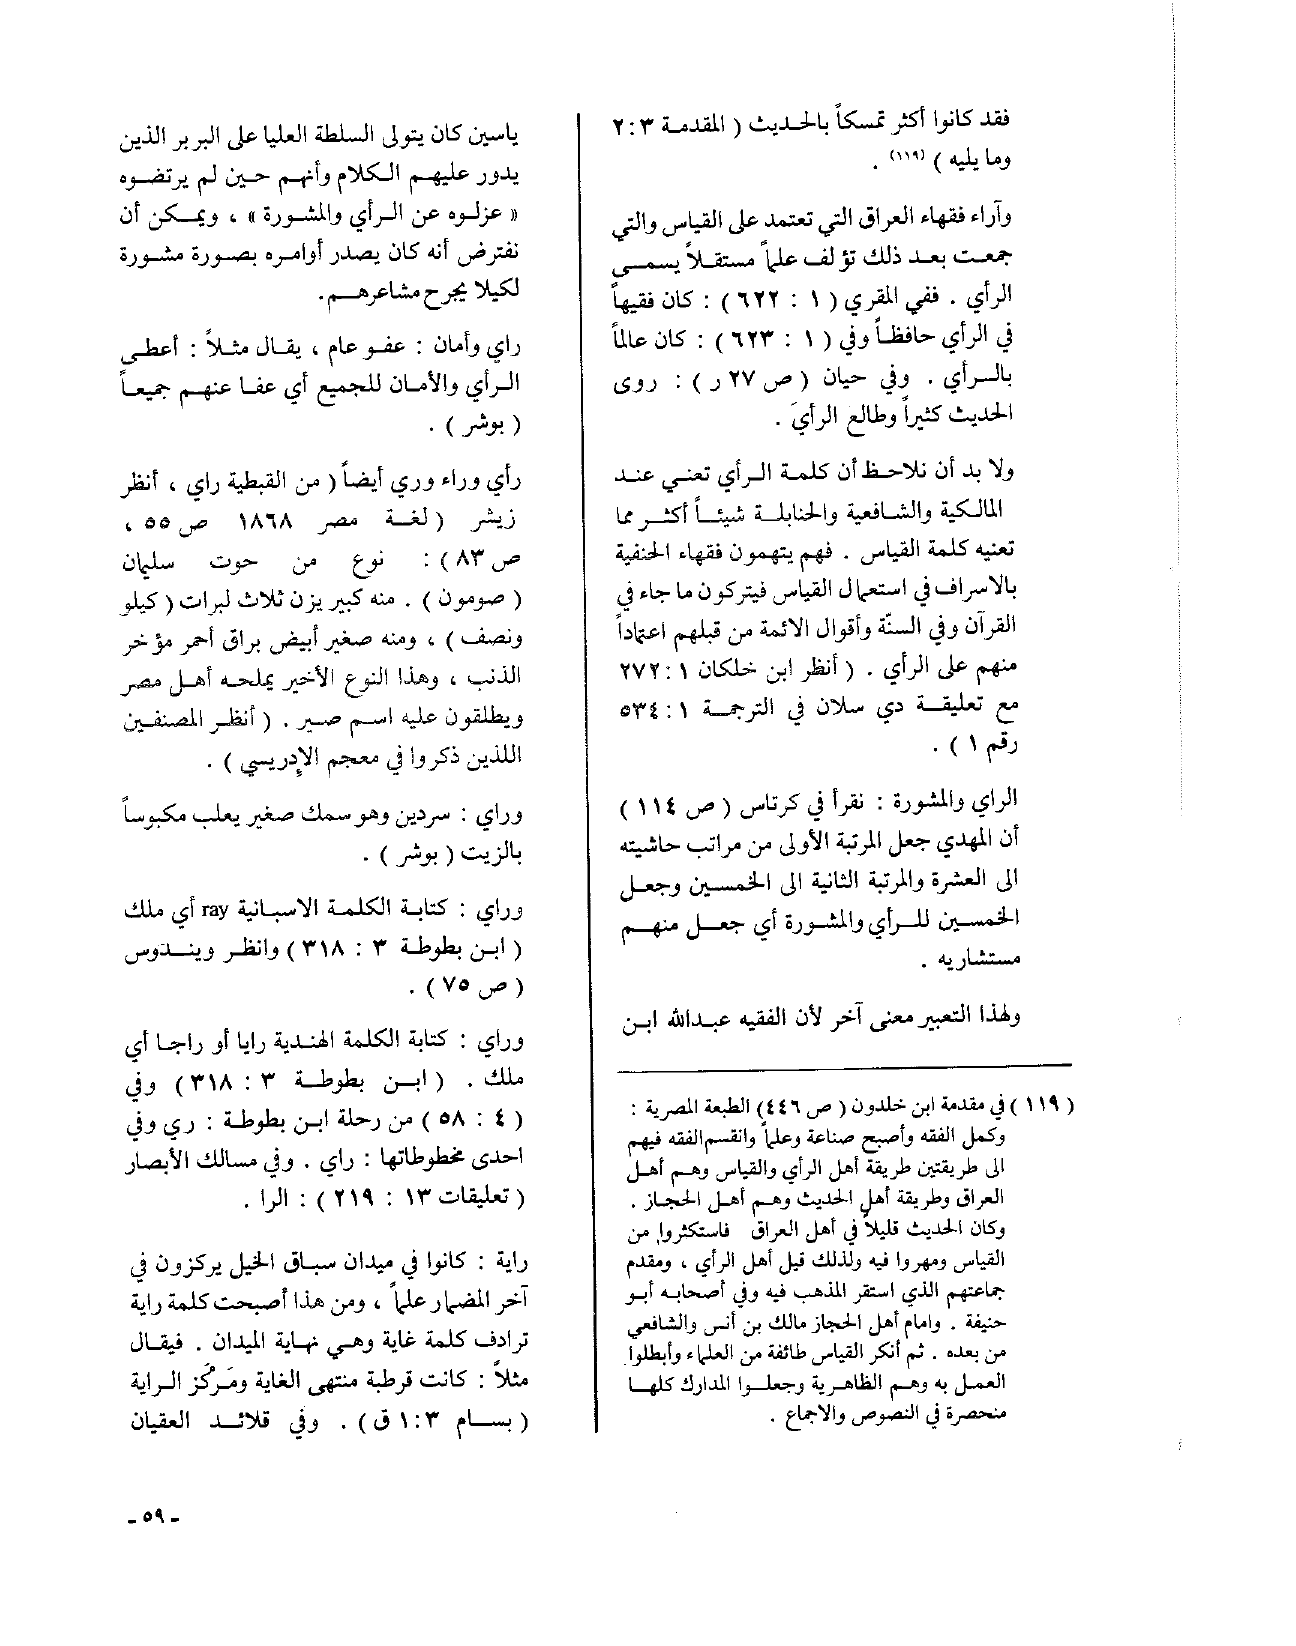 فقد كانوا أكثر تمسكاً بالحديث ( المقدمة ٣ : ٢
وما يليه ) (١١٩) .
وآراء فقهاء العراق التي تعتمد على القياس والتي
جمعت بعد ذلك تؤلف علماً مستقلاً يسمى
الرأي . ففي المقري ( ١ : ٦٢٢ ) : كان فقيهاً
في الرأي حافظاً وفي ( ١ : ٦٢٣ ) : كان عالماً
بالرأي . وفي حيان ( ص ٢٧ ر ) : روى
الحديث كثيراً وطالع الرأيَ .
ولا بد أن نلاحظ أن كلمة الرأي تعني عند
المالكية والشافعية والحنابلة شيئاً أكثر مما
تعنيه كلمة القياس . فهم يتهمون فقهاء الحنفية
بالاسراف في استعمال القياس فيتركون ما جاء في
القرآن وفي السنّة وأقوال الائمة من قبلهم اعتماداً
منهم على الرأي . ( أنظر ابن خلكان ١ : ٢٧٢
مع تعليقة دي سلان في الترجمة ١ : ٥٣٤
رقم ١ ) .
الراي والمشورة : نقرأ في كرتاس ( ص ١١٤ )
أن المهدي جعل المرتبة الأولى من مراتب حاشيته
الى العشرة والمرتبة الثانية الى الخمسين وجعل
الخمسين للرأي والمشورة أي جعل منهم
مستشاريه .
ولهذا التعبير معنى آخر لأن الفقيه عبدالله ابن
( ١١٩ ) في مقدمة ابن خلدون ( ص ٤٤٦ ) الطبعة المصرية :
وكمل الفقه وأصبح صناعة وعلماً وانقسم الفقه فيهم
الى طريقتين طريقة أهل الرأي والقياس وهم أهل
العراق وطريقة أهل الحديث وهم أهل الحجاز .
وكان الحديث قليلاً في أهل العراق فاستكثروا من
القياس ومهروا فيه ولذلك قيل أهل الرأي ، ومقدم
جماعتهم الذي استقر المذهب فيه وفي أصحابه أبو
حنيفة . وامام أهل الحجاز مالك بن أنس والشافعي
من بعده . ثم أنكر القياس طائفة من العلماء وأبطلوا
العمل به وهم الظاهرية وجعلوا المدارك كلها
منحصرة في النصوص والاجماع .
ياسين كان يتولى السلطة العليا على البربر الذين
يدور عليهم الكلام وأنهم حين لم يرتضوه
« عزلوه عن الرأي والمشورة » ، ويمكن أن
نفترض أنه كان يصدر أوامره بصورة مشورة
لكيلا يجرح مشاعرهم.
راي وأمان : عفو عام ، يقال مثلاً : أعطى
الرأي والأمان للجميع أي عفا عنهم جميعاً
( بوشر ) .
رأي وراء وري أيضاً ( من القبطية راي ، أنظر
زيشر ( لغة مصر ١٨٦٨ ص ٥٥ ،
ص ٨٣ ) : نوع من حوت سليمان
( صومون ) . منه كبير يزن ثلاث لبرات ( كيلو
ونصف ) ، ومنه صغير أبيض براق أحمر مؤخر
الذنب ، وهذا النوع الأخير يملحه أهل مصر
ويطلقون عليه اسم صير . ( أنظر المصنفين
اللذين ذكروا في معجم الإدريسي ) .
وراي : سردين وهو سمك صغير يعلب مكبوساً
بالزيت ( بوشر ) .
وراي : كتابة الكلمة الاسبانية ray أي ملك
( ابن بطوطة ٣ : ٣١٨ ) وانظر ويندوس
( ص ٧٥ ) .
وراي : كتابة الكلمة الهندية رايا أو راجا أي
ملك . ( ابن بطوطة ٣ : ٣١٨ ) وفي
( ٤ : ٥٨ ) من رحلة ابن بطوطة : ري وفي
احدى مخطوطاتها : راي . وفي مسالك الأبصار
( تعليقات ١٣ : ٢١٩ ) : الرا .
راية : كانوا في ميدان سباق الخيل يركزون في
آخر المضمار علماً ، ومن هذا أصبحت كلمة راية
ترادف كلمة غاية وهي نهاية الميدان . فيقال
مثلاً : كانت قرطبة منتهى الغاية ومَركَز الراية
( بسام ٣ : ١ ق ) . وفي قلائد العقيان
ـ ٥٩ ـ